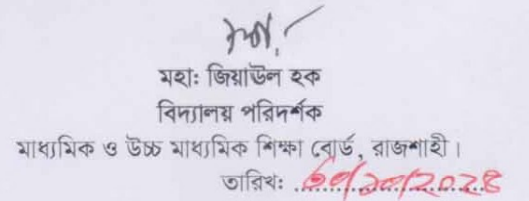 মহা: জিয়াউল হক
বিদ্যালয় পরিদর্শক
মাধ্যমিক ও উচ্চ মাধ্যমিক শিক্ষা বোর্ড, রাজশাহী।
তারিখ: